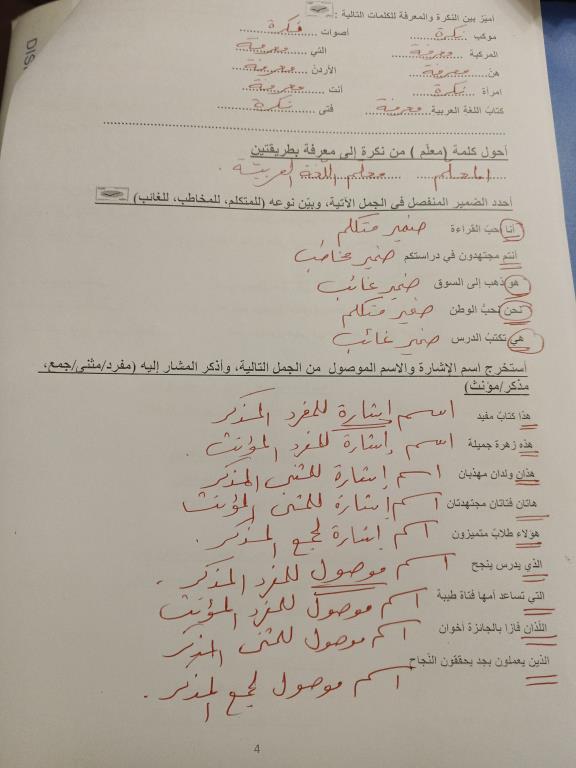 أميّز بين النكرة والمعرفة للكلمات التالية :
موكب نكرة أصوات فكرة
المركبة معرفة التي معرفة
هنّ معرفة الأردنّ معرفة
امرأة نكرة أنت معرفة
كتابُ اللغة العربية معرفة فتى نكرة
أحول كلمة (معلّم ) من نكرة إلى معرفة بطريقتين
المعلم معلم اللغة العربية
أحدد الضمير المنفصل في الجمل الآتية، وبيّن نوعه (للمتكلم، للمخاطب، للغائب)
أنا أحبّ القراءة ضمير متكلم
أنتم مجتهدون في دراستكم ضمير مخاطب
هو ذهب إلى السوق ضمير غائب
نحن نحبُّ الوطن ضمير متكلم
هي تكتبُ الدرس ضمير غائب
أستخرج اسم الإشارة والاسم الموصول من الجمل التالية، وأذكر المشار إليه (مفرد/مثنى/جمع،
مذكر/مؤنث)
هذا كتابٌ مفيد اسم إشارة للمفرد المذكر
هذه زهرة جميلة اسم إشارة للمفرد المؤنث .
هذان ولدان مهذبان اسم إشارة للمثنى المذكر
هاتان فتاتان مجتهدتان اسم إشارة للمثنى المؤنث
هؤلاء طلابٌ متميزون اسم إشارة لجمع المذكر .
الذي يدرس ينجح اسم موصول للمفرد المذكر .
التي تساعد أمها فتاة طيبة اسم موصول للمفرد المؤنث
اللّذان فازا بالجائزة أخوان اسم موصول للمثنى المذكر
الذين يعملون بجد يحققون النّجاح اسم موصول لجمع المذكر .
4